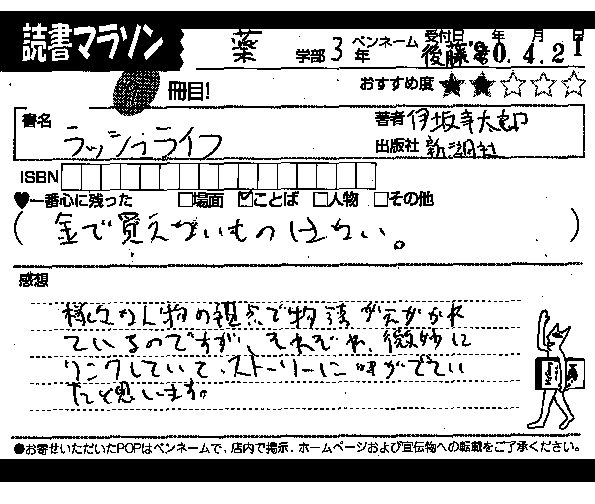 読書マラソン
薬 学部 3 年 ペンネーム 後藤 受付日 年 月 日
'20. 4. 21
冊目! おすすめ度 ★★☆☆☆
書名 ラッシュライフ
著者 伊坂幸太郎
出版社 新潮社
ISBN
♥一番心に残った □場面 ☑ことば □人物 □その他
( 金で買えないものはない。 )
感想
様々な人物の視点で物語がえがかれ
ているのですが、それぞれ、微妙に
リンクしていて、ストーリーに味がでてい
たと思います。
●お寄せいただいたPOPはペンネームで、店内で掲示、ホームページおよび宣伝物への転載をご了承ください。